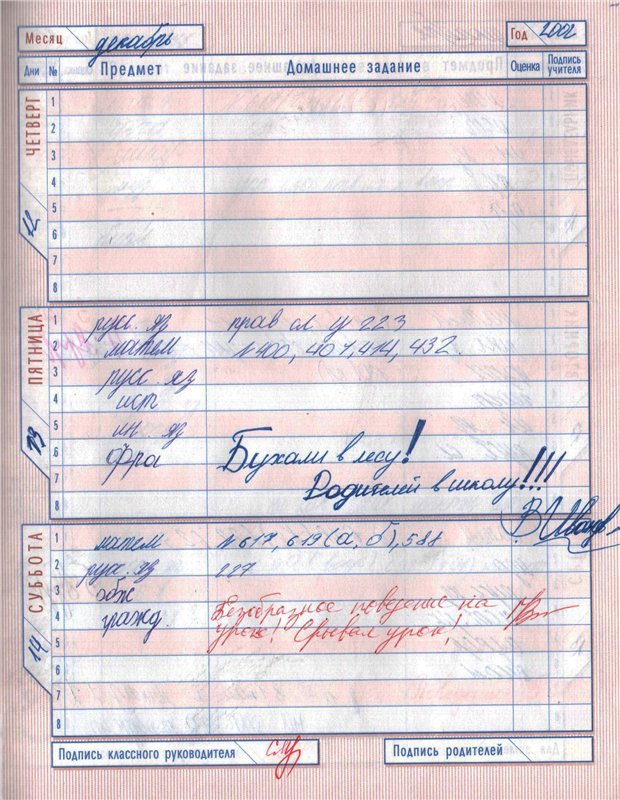 Месяц декабрь Год 2002
Дни № Предмет Домашнее задание Оценка Подпись учителя
ЧЕТВЕРГ
12
1
2
3
4
5
6
7
8
ПЯТНИЦА
13
1 русс. яз прав сл у 223
2 матем №400, 407, 414, 432.
3 русс. яз
4 ист
5 ин. яз
6 Фра Бухали в лесу!
7 Родителей в школу!!!
8 В Иванов
СУББОТА
14
1 матем №617, 619 (а, б), 588
2 русс. яз 227
3 обж
4 гражд. Безобразное поведение на
5 уроке! Срывал урок!
6
7
8
Подпись классного руководителя
Подпись родителей